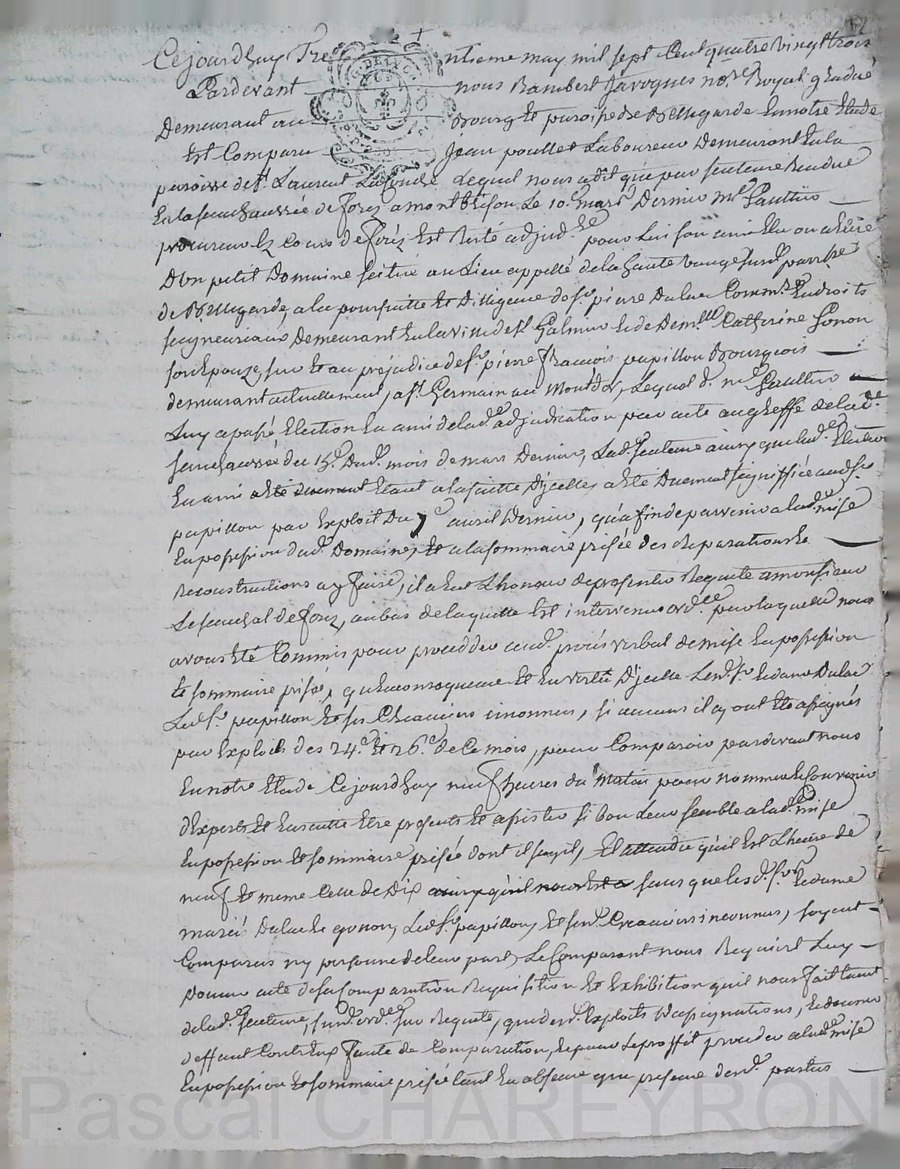 Cejourdhuy Trentieme may mil sept Cent quatre vingt trois
Pardevant nous Rambert Javoques no.re Royal gradué
Demeurant au Bourg et paroisse de Bellegarde En notre Etude
Est Comparu Jean poullet Laboureur Demeurant En la
paroisse de S.t Laurent Laconche Lequel nous a dit que par sentence Rendue
En la senechaussée de forez a montbrison Le 10.e mars Dernier m.e Gaultier
procureur Ez Cours de forez Est Resté adjud.re pour Lui son ami Elu ou a Elire
D'un petit Domaine scitué au Lieu appellé de la haute
de Bellegarde, a la poursuitte Et Dilligence de s.r pierre Dulac Comm.re En droits
seigneuriaux Demeurant En la ville de s.t Galmier Et de Dem.lle Catherine Gonon
son Epouze, sur Et au préjudice de s.r pierre francois papillon Bourgeois
demeurant actuellement, a s.t Germain au Montd'or, Lequel d. m.e Gaultier
Luy a passé Election En ami de lad.e adjudication par acte au greffe de lad.e
senechaussée du 15.e Dud. mois de mars Dernier, Lad.e sentence ainsy que lad.e Election
En ami Etant a la suitte D'jcelles a Eté Duement signiffiée aud. s.r
papillon par Exploit Du 7.e avril Dernier, qu'a fin de parvenir a lad.e mise
En possession dud. Domaine, Et a la sommaire prisée des Reparations Et
Reconstructions a y faire, il a Eut L'honneur de presenter Requete a monsieur
Le senechal de forez, au bas de laquelle Est intervenue ord.ce par laquelle nous
avons Eté Commis pour procedder aud. procés verbal de mise En possession
Et sommaire prisée, qu'En consequence Et En vertu D'jcelle Lesd. s.r Et dame Dulac
Led. s.r papillon Et ses Créanciers inconnus, si aucuns il y ont Eté assignés
par Exploits des 24.e Et 26.e de Ce mois, pour Comparoir pardevant nous
En notre Etude Cejourdhuy neuf heures du matin pour nommer Et Convenir
d'Experts Et Ensuitte Etre presents Et assister si bon Leur semble a lad.e mise
En possession Et sommaire prisée dont il s'agit, Et attendu qu'il Est L'heure de
neuf Et meme Celle de Dix sans que lesd. s.r Et dame
mariés Dulac Et gonon, Led. s.r papillon, Et sesd. Créanciers inconnus, soyent
Comparus ny personne de leur part, Le Comparant nous Requiert Luy
Donner acte de sa Comparution Requisition Et Exhibition qu'il nous fait tant
de lad.e sentence, susd. ord.ce sur Requete, que desd. Exploits D'assignations, Et donner
deffaut Contr'Eux faute de Comparution, Et pour Le proffit procéder a lad.e mise
En possession Et sommaire prisée tant En absence que presence desd. parties
Pascal CHAREYRON